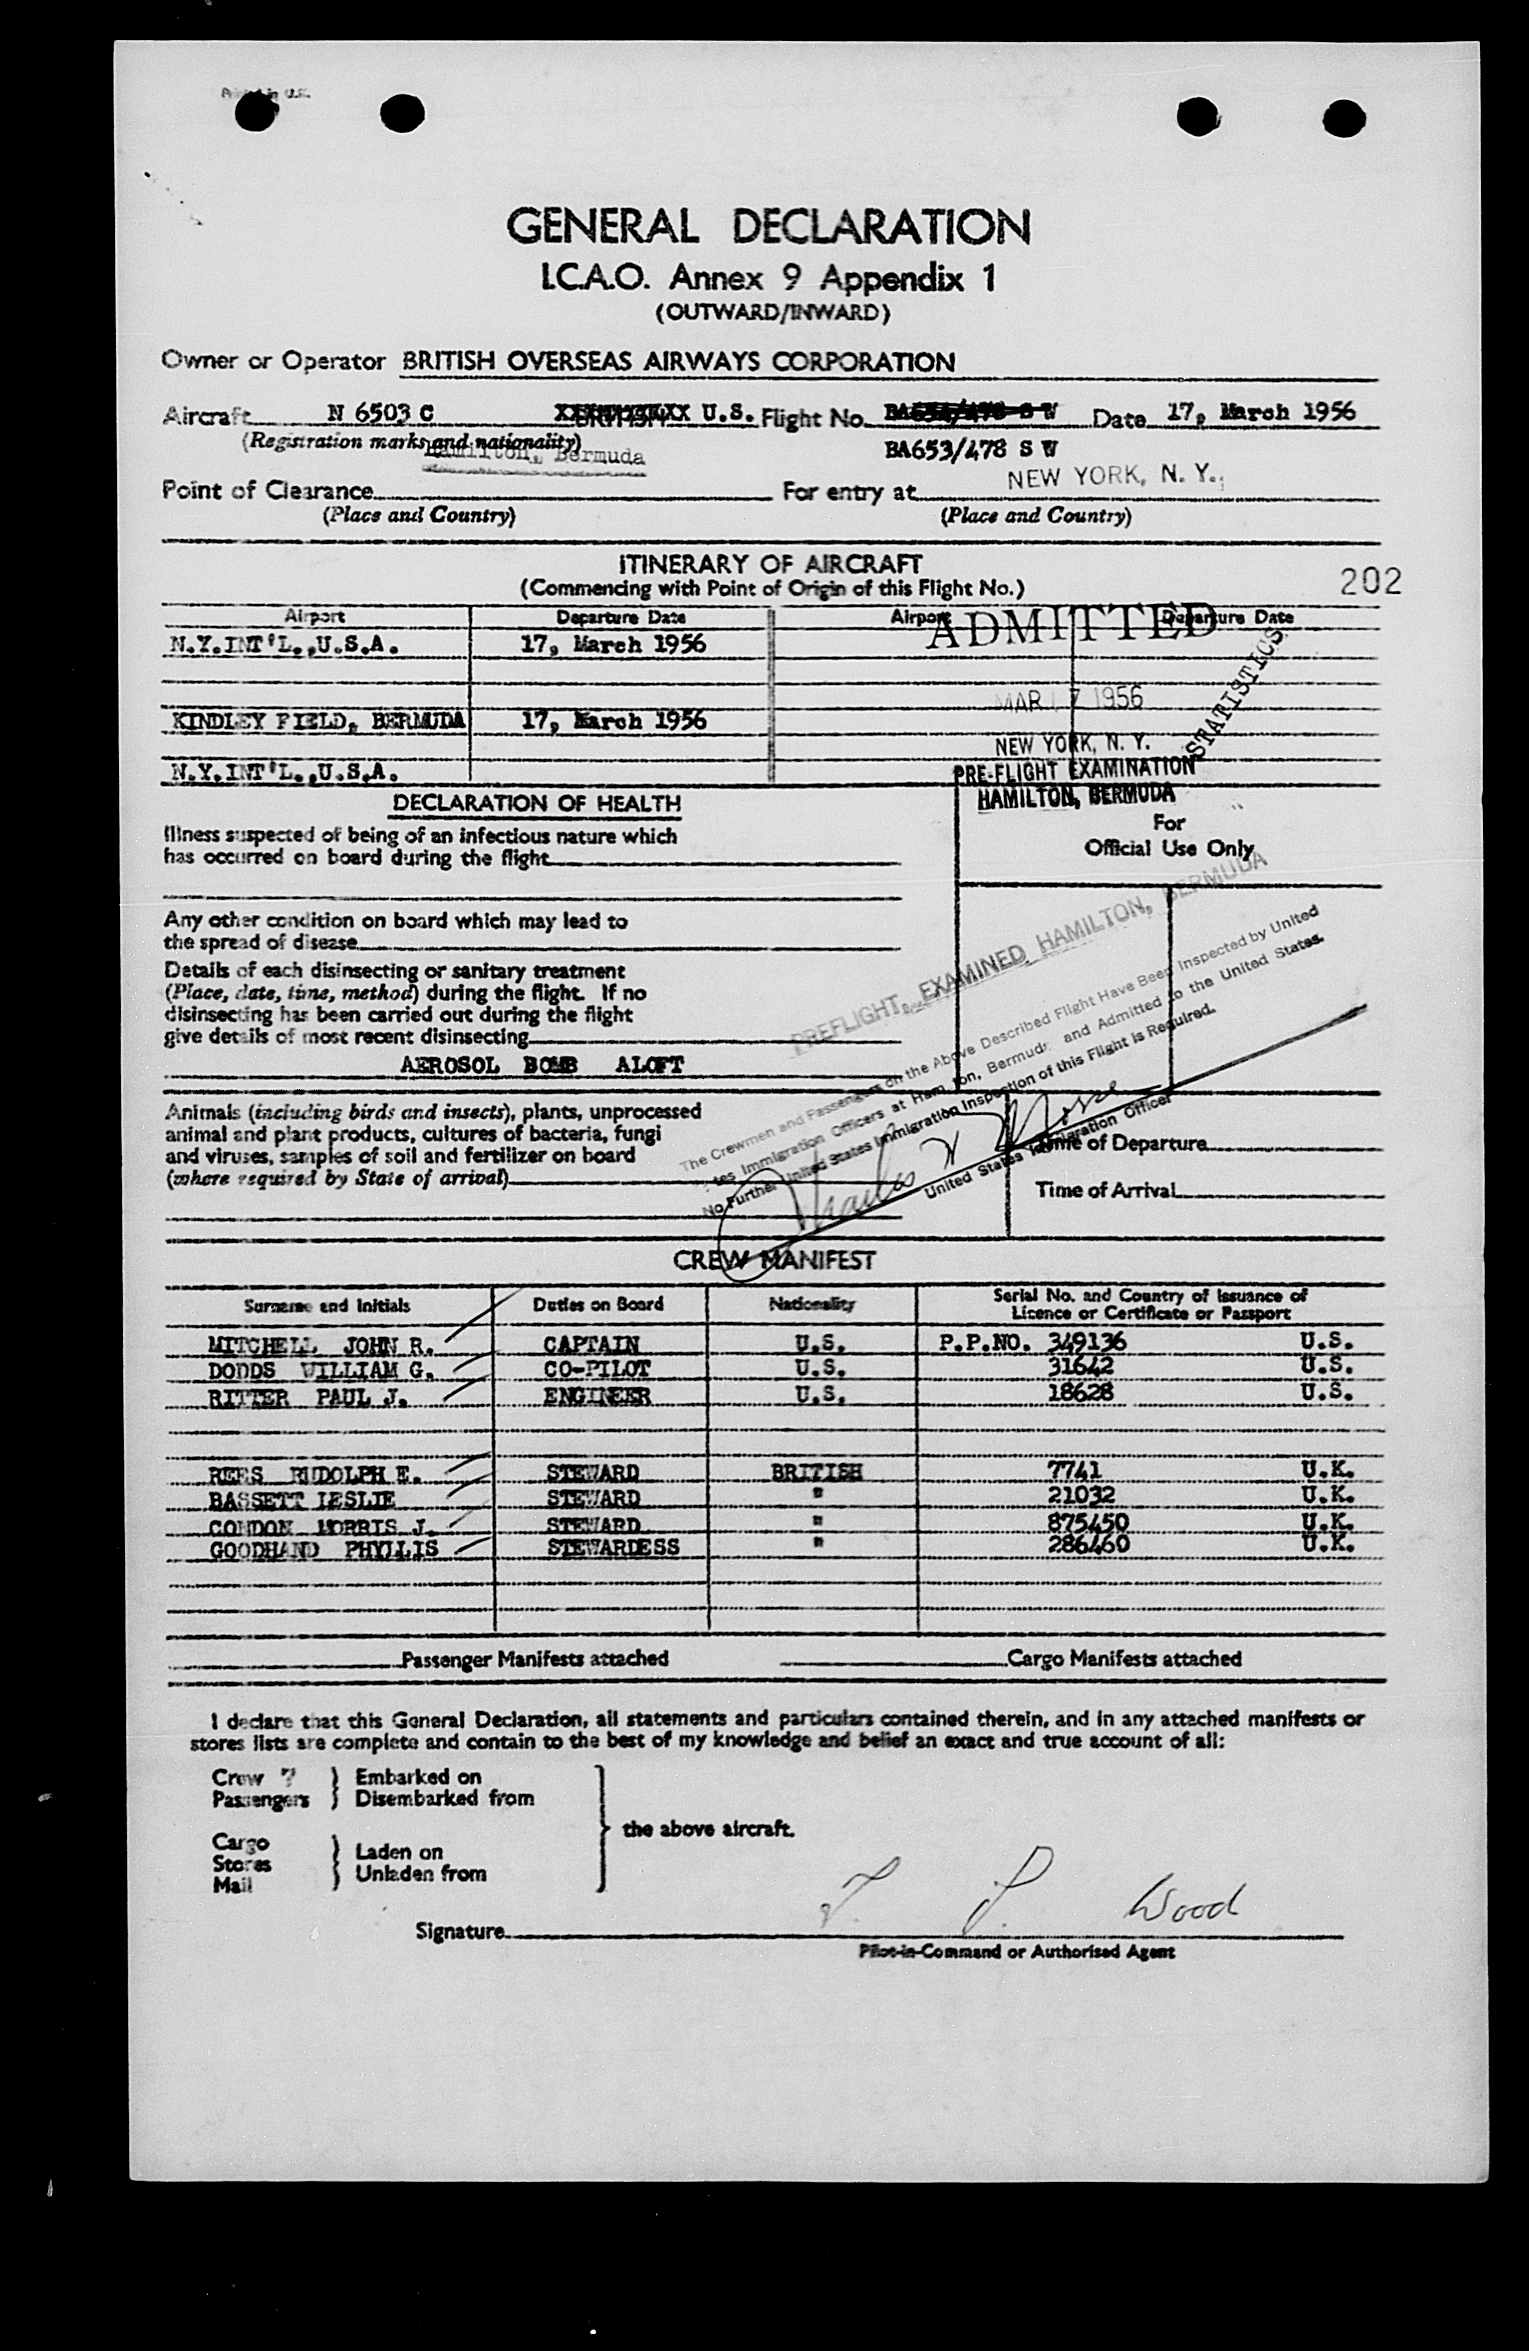 Printed in U.K.
GENERAL DECLARATION
I.C.A.O. Annex 9 Appendix 1
(OUTWARD/INWARD)
Owner or Operator BRITISH OVERSEAS AIRWAYS CORPORATION
Aircraft N 6503 C U.S. Flight No. Date 17, March 1956
(Registration marks and nationality) BA653/478 S W
Hamilton, Bermuda
NEW YORK, N. Y.,
Point of Clearance For entry at
(Place and Country) (Place and Country)
ITINERARY OF AIRCRAFT
(Commencing with Point of Origin of this Flight No.) 202
Airport Departure Date Airport Departure Date
ADMITTED
N.Y.INT'L.,U.S.A. 17, March 1956
STATISTICS
MAR 17 1956
KINDLEY FIELD, BERMUDA 17, March 1956
NEW YORK, N. Y.
N.Y.INT'L.,U.S.A.
PRE-FLIGHT EXAMINATION
HAMILTON, BERMUDA
DECLARATION OF HEALTH
For
Official Use Only
Illness suspected of being of an infectious nature which
has occurred on board during the flight
Any other condition on board which may lead to
the spread of disease
Details of each disinsecting or sanitary treatment
(Place, date, time, method) during the flight. If no
disinsecting has been carried out during the flight
give details of most recent disinsecting
AEROSOL BOMB ALOFT
PREFLIGHT EXAMINED HAMILTON, BERMUDA
The Crewmen and Passengers on the Above Described Flight Have Been Inspected by United
States Immigration Officers at Hamilton, Bermuda and Admitted to the United States.
No Further United States Immigration Inspection of this Flight is Required.
United States Immigration Officer
Animals (including birds and insects), plants, unprocessed
animal and plant products, cultures of bacteria, fungi
and viruses, samples of soil and fertilizer on board
(where required by State of arrival)
Time of Departure
Time of Arrival
CREW MANIFEST
Surname and Initials Duties on Board Nationality Serial No. and Country of Issuance of
Licence or Certificate or Passport
MITCHELL JOHN R. CAPTAIN U.S. P.P.NO. 349136 U.S.
DODDS WILLIAM G. CO-PILOT U.S. 31642 U.S.
RITTER PAUL J. ENGINEER U.S. 18628 U.S.
REES RUDOLPH E. STEWARD BRITISH 7741 U.K.
BASSETT LESLIE STEWARD " 21032 U.K.
CONDON MORRIS J. STEWARD " 875450 U.K.
GOODHAND PHYLLIS STEWARDESS " 286460 U.K.
Passenger Manifests attached Cargo Manifests attached
I declare that this General Declaration, all statements and particulars contained therein, and in any attached manifests or
stores lists are complete and contain to the best of my knowledge and belief an exact and true account of all:
Crew 7 } Embarked on
Passengers } Disembarked from
the above aircraft.
Cargo
Stores } Laden on
Mail } Unladen from
Wood
Signature
Pilot-in-Command or Authorised Agent